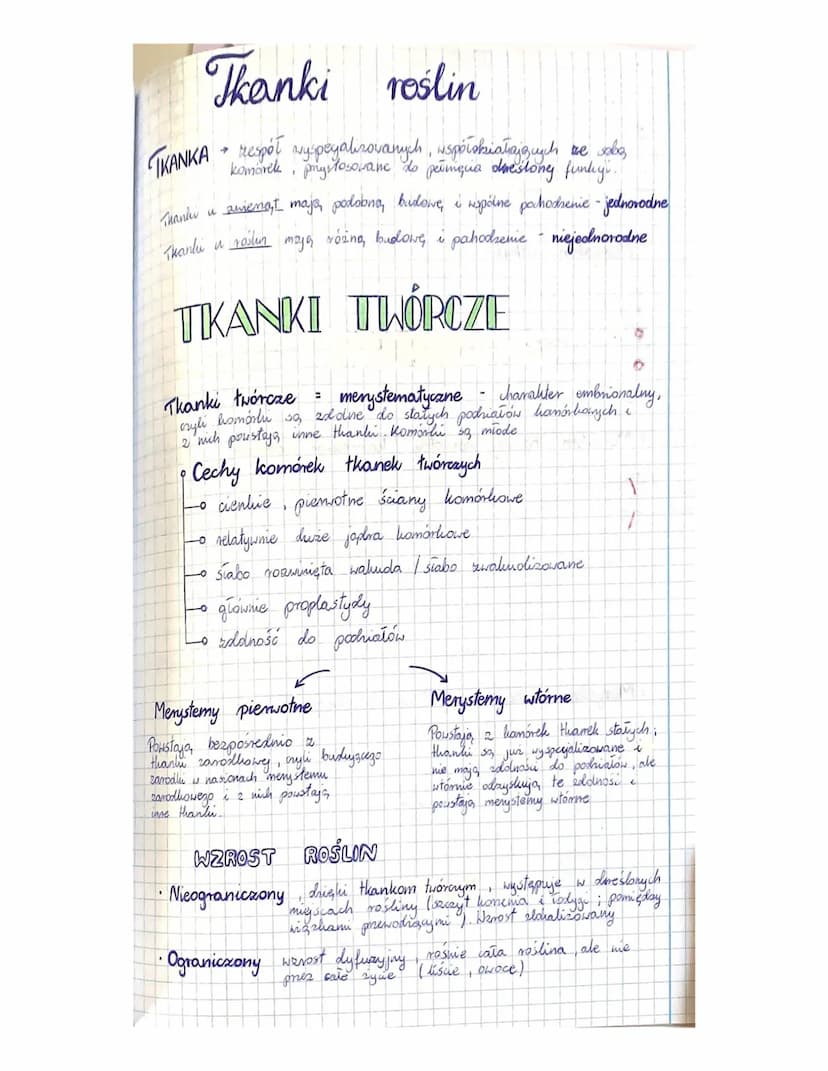 Tkanki roślin
TKANKA → zespół wyspecjalizowanych, współdziałających ze sobą
komórek, przystosowane do pełnienia określonej funkcji.
Tkanki u zwierząt mają podobną budowę i wspólne pochodzenie - jednorodne
Tkanki u roślin mają różną budowę i pochodzenie - niejednorodne
TKANKI TWÓRCZE
Tkanki twórcze = merystematyczne - charakter embrionalny,
czyli komórki są zdolne do stałych podziałów komórkowych i
z nich powstają inne tkanki. Komórki są młode
Cechy komórek tkanek twórczych
cienkie, pierwotne ściany komórkowe
relatywnie duże jądra komórkowe
słabo rozwinięta wakuola / słabo zwakuolizowane
głównie proplastydy
zdolność do podziałów
Merystemy pierwotne
Powstają bezpośrednio z
tkanki zarodkowej, czyli budującego
zarodki w nasionach merystemu
zarodkowego i z nich powstają
inne tkanki.
Merystemy wtórne
Powstają z komórek tkanek stałych;
tkanki są już wyspecjalizowane i
nie mają zdolności do podziałów, ale
wtórnie odzyskują te zdolności i
powstają merystemy wtórne
WZROST ROŚLIN
· Nieograniczony, dzięki tkankom twórczym, występuje w określonych
miejscach rośliny (szczyt korzenia i łodygi; pomiędzy
wiązkami przewodzącymi). Wzrost zlokalizowany
· Ograniczony wzrost dyfuzyjny, rośnie cała roślina, ale nie
przez całe życie (liście, owoce)